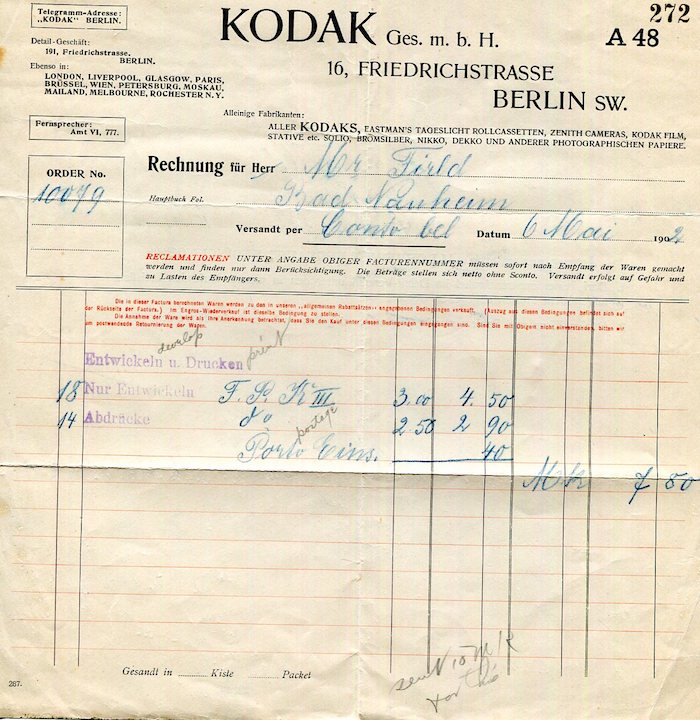 Telegramm-Adresse:
„KODAK" BERLIN.
272
KODAK Ges. m. b. H.
A 48
Detail-Geschäft:
191, Friedrichstrasse.
BERLIN.
Ebenso in:
LONDON, LIVERPOOL, GLASGOW, PARIS,
BRÜSSEL, WIEN, PETERSBURG, MOSKAU,
MAILAND, MELBOURNE, ROCHESTER N.Y.
16, FRIEDRICHSTRASSE
BERLIN SW.
Fernsprecher:
Amt VI, 777.
Alleinige Fabrikanten:
ALLER KODAKS, EASTMAN'S TAGESLICHT ROLLCASSETTEN, ZENITH CAMERAS, KODAK FILM,
STATIVE etc. SOLIO, BROMSILBER, NIKKO, DEKKO UND ANDERER PHOTOGRAPHISCHEN PAPIERE.
ORDER No.
10079
Rechnung für Herr Mr
Hauptbuch Fol. Bad Nauheim
Versandt per Conto bel Datum 6 Mai 1902
RECLAMATIONEN UNTER ANGABE OBIGER FACTURENNUMMER müssen sofort nach Empfang der Waren gemacht
werden und finden nur dann Berücksichtigung. Die Beträge stellen sich netto ohne Sconto. Versandt erfolgt auf Gefahr und
zu Lasten des Empfängers.
Die in dieser Factura berechneten Waren werden zu den in unseren „allgemeinen Rabattsätzen" angegebenen Bedingungen verkauft. (Auszug aus diesen Bedingungen befindet sich auf
der Rückseite der Factura.) Im Engros-Wiederverkauf ist dieselbe Bedingung zu stellen.
Die Annahme der Ware wird als Ihre Anerkennung betrachtet, dass Sie den Kauf unter diesen Bedingungen eingegangen sind. Sind Sie mit Obigem nicht einverstanden, bitten wir
um postwendende Retournierung der Waren.
develop print
Entwickeln u. Drucken
18 Nur Entwickeln F. P. K III 3.00 4.50
14 Abdrücke do 2.50 2 90
postage
Porto Eins. 40
Mk 7 80
sent 10 M/K
for this
Gesandt in Kiste Packet
287.